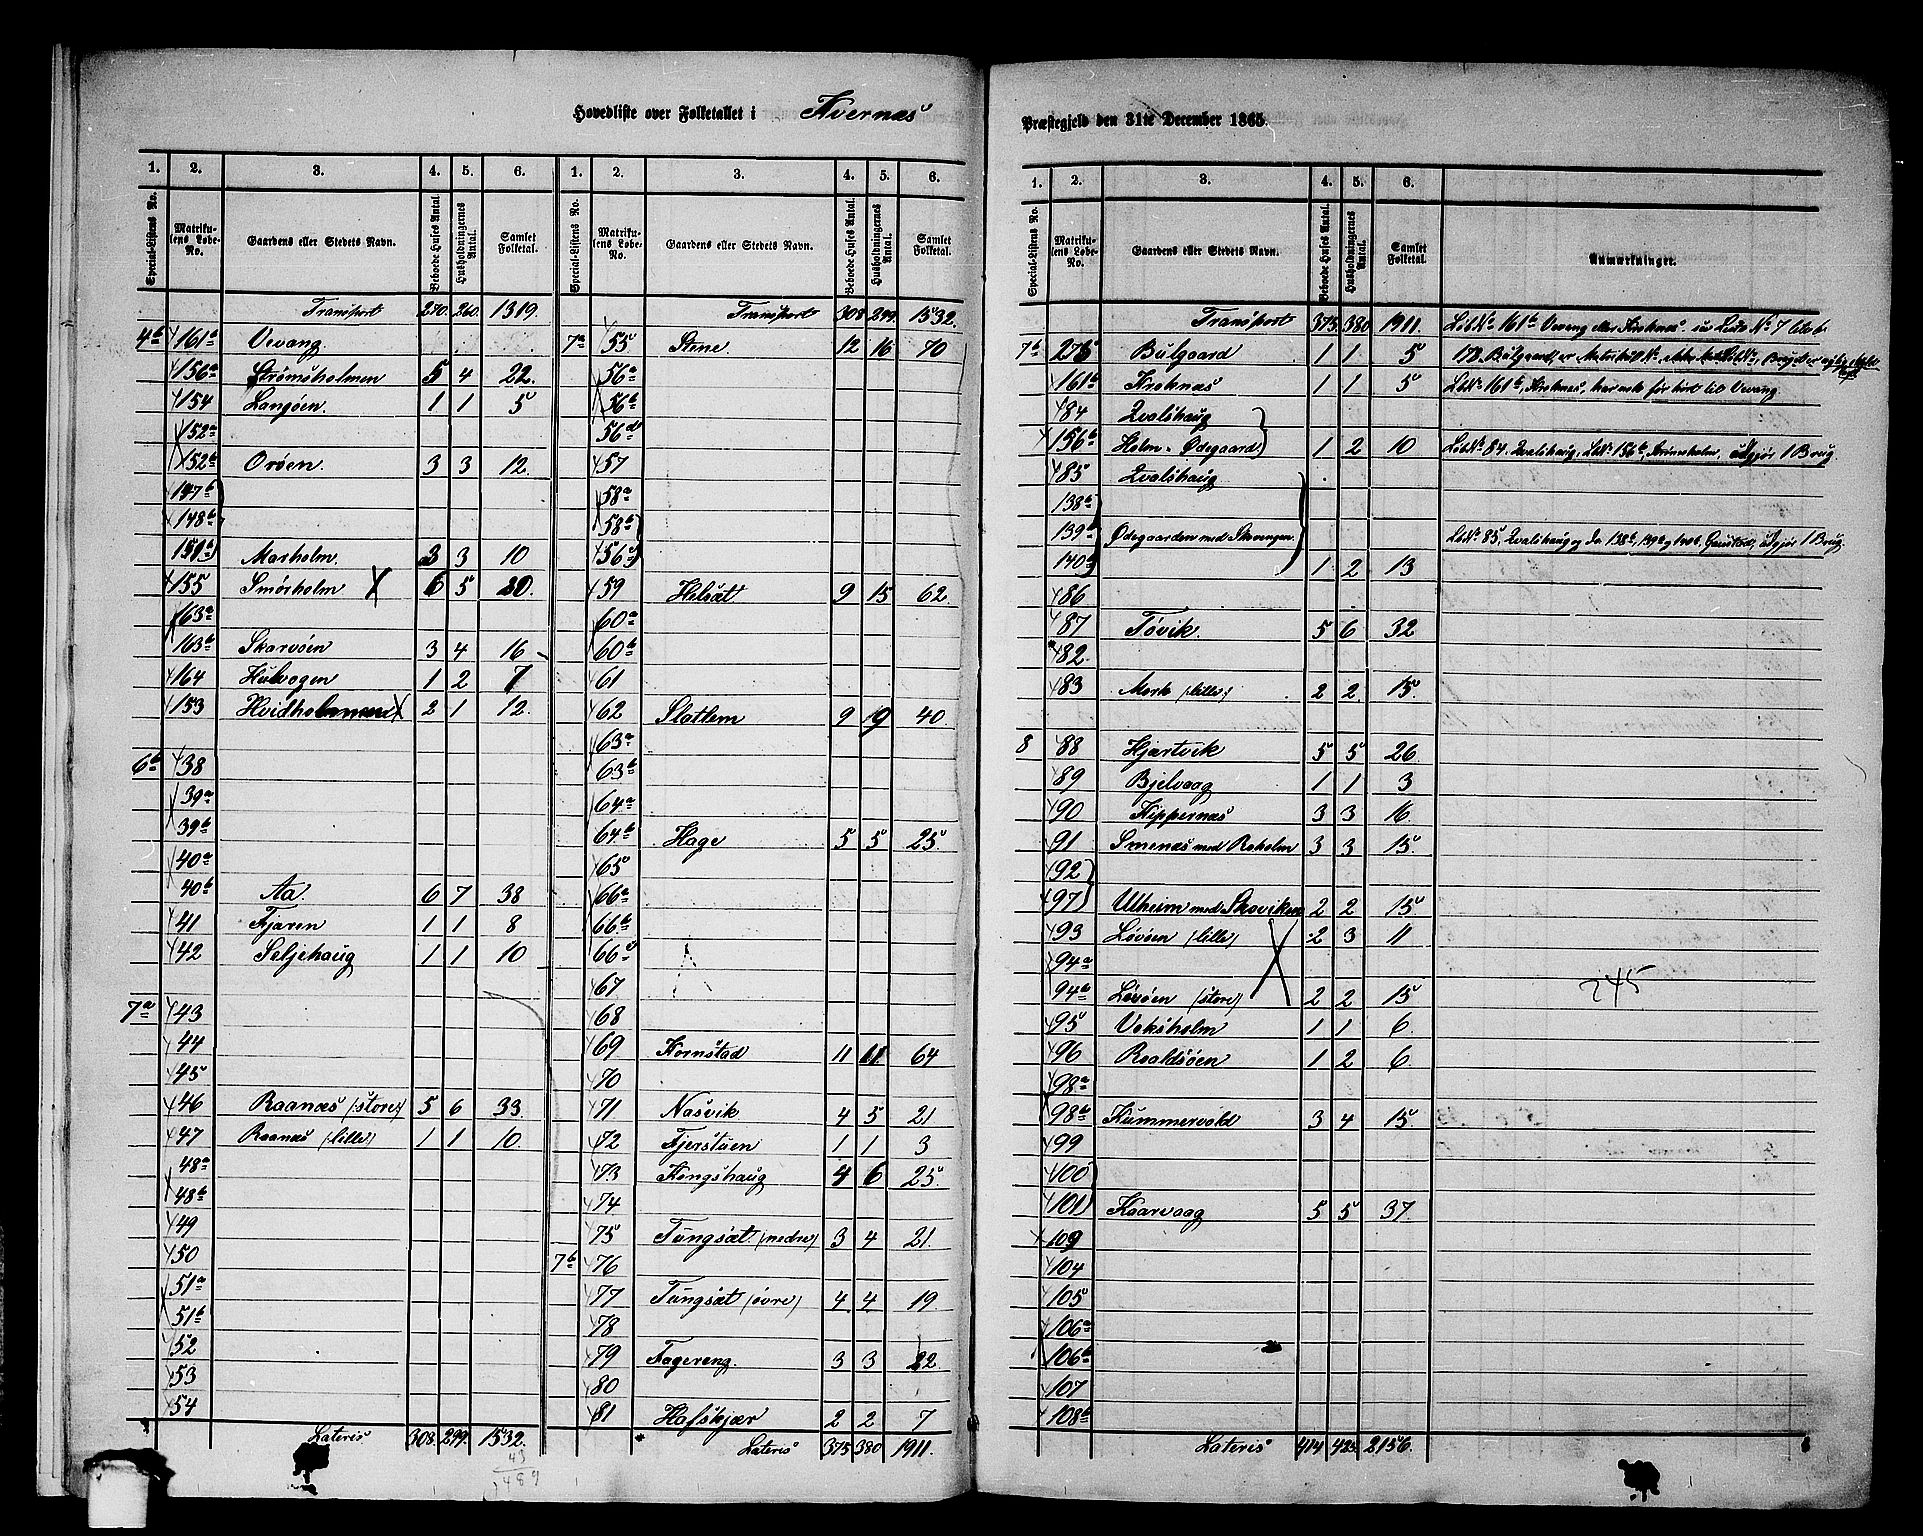 Hovedliste over Folketallet i Kvernæs
1. 2. 3. 4. 5. 6.
Special-Listens No. Matrikulens Løbe-No. Gaardens eller Stedets Navn. Beboede Huses Antal. Husholdningernes Antal. Samlet Folketal.
Transport 270. 260. 1319.
4b 161a Vevang
156a Strömsholmen 5 4 22.
154 Langöen. 1 1 5
152a
152b Oröen. 3 3 12.
147b
148b
151b Marholm. 3 3 10
155 Smörholm X 6 5 20.
163a
163b Skarvöen 3 4 16
164 Hulvogen 1 2 7
153 Hvidholmene X 2 1 12.
6b 38
39a
39b
40a
40b Aa. 6 7 38
41 Fjæren 1 1 8
42 Seljehaug 1 1 10
7a 43
44
45
46 Raanæs (:store:) 5 6 33.
47 Raanæs (lille) 1 1 10.
48a
48b
49
50
51a
51b
52
53
54
Lateris 308. 299. 1532.
43
1489
1. 2. 3. 4. 5. 6.
Special-Listens No. Matrikulens Løbe-No. Gaardens eller Stedets Navn. Beboede Huses Antal. Husholdningernes Antal. Samlet Folketal.
Transport 308 299. 1532.
7a 55 Stene 12 16 70
56a
56b
56d
57
58a
58b
56c
59 Helsæt 9 15 62.
60a
60b
61
62 Slatlem 9 9 40
63a
63b
64a
64b Hage 5 5 25
65
66a
66b
66c
67
68
69 Kornstad 11 11 64
70
71 Nasvik 4 5 21
72 Fjerstuen 1 1 3
73 Kongshaug 4 6 25.
74
75 Tungsæt (nedre) 3 4 21.
7b 76
77 Tungsæt (övre) 4 4 19
78
79 Fagereng. 3 3 22.
80
81 Hafskjær 2 2 7
Lateris 375 380 1911.
Præstegjeld den 31te December 1865.
1. 2. 3. 4. 5. 6.
Special-Listens No. Matrikulens Løbe-No. Gaardens eller Stedets Navn. Beboede Huses Antal. Husholdningernes Antal. Samlet Folketal. Anmærkninger.
Transport 375 380 1911. LöbNo 161b Vevang eller Kroknæs
7b 275 Bulgaard 1 1 5 178 Bulgaard, er
161b Kroknæs 1 1 5 LbNo 161b, Kroknæs, har til Vevang.
84 Qvalshaug
156b Holm-Ødegaard 1 2 10 LöbNo 84. Qvalshaug, LbNo 156b, Strömsholm, udgjør 1 Brug.
85 Qvalshaug
138b
139b Ødegaarden med Skovengen. LbNo 85, Qvalshaug og 138b, 139b og 140b, Gaustad, udgjør 1 Brug.
140b 1 2 13
86
87 Tövik. 5 6 32
82.
83 Mork (:lille:) 2 2 15.
8 88 Hjartvik 5 5 26
89 Bjelvaag 1 1 3
90 Kippernæs 3 3 16
91 Smenæs med Roholm 3 3 15
92
97 Ulheim med Skoviken 2 2 15
93 Lövöen (lille) 2 3 11
94a
94b Lövöen (store) 2 2 15 245
95 Voksholm 1 1 6
96 Roaldsöen 1 2 6.
98a
98b Kummervold 3 4 15
99
100
101 Kaarvaag 5 5 37.
109
104
105
106a
106b
107
108b
Lateris 414 425. 2156.